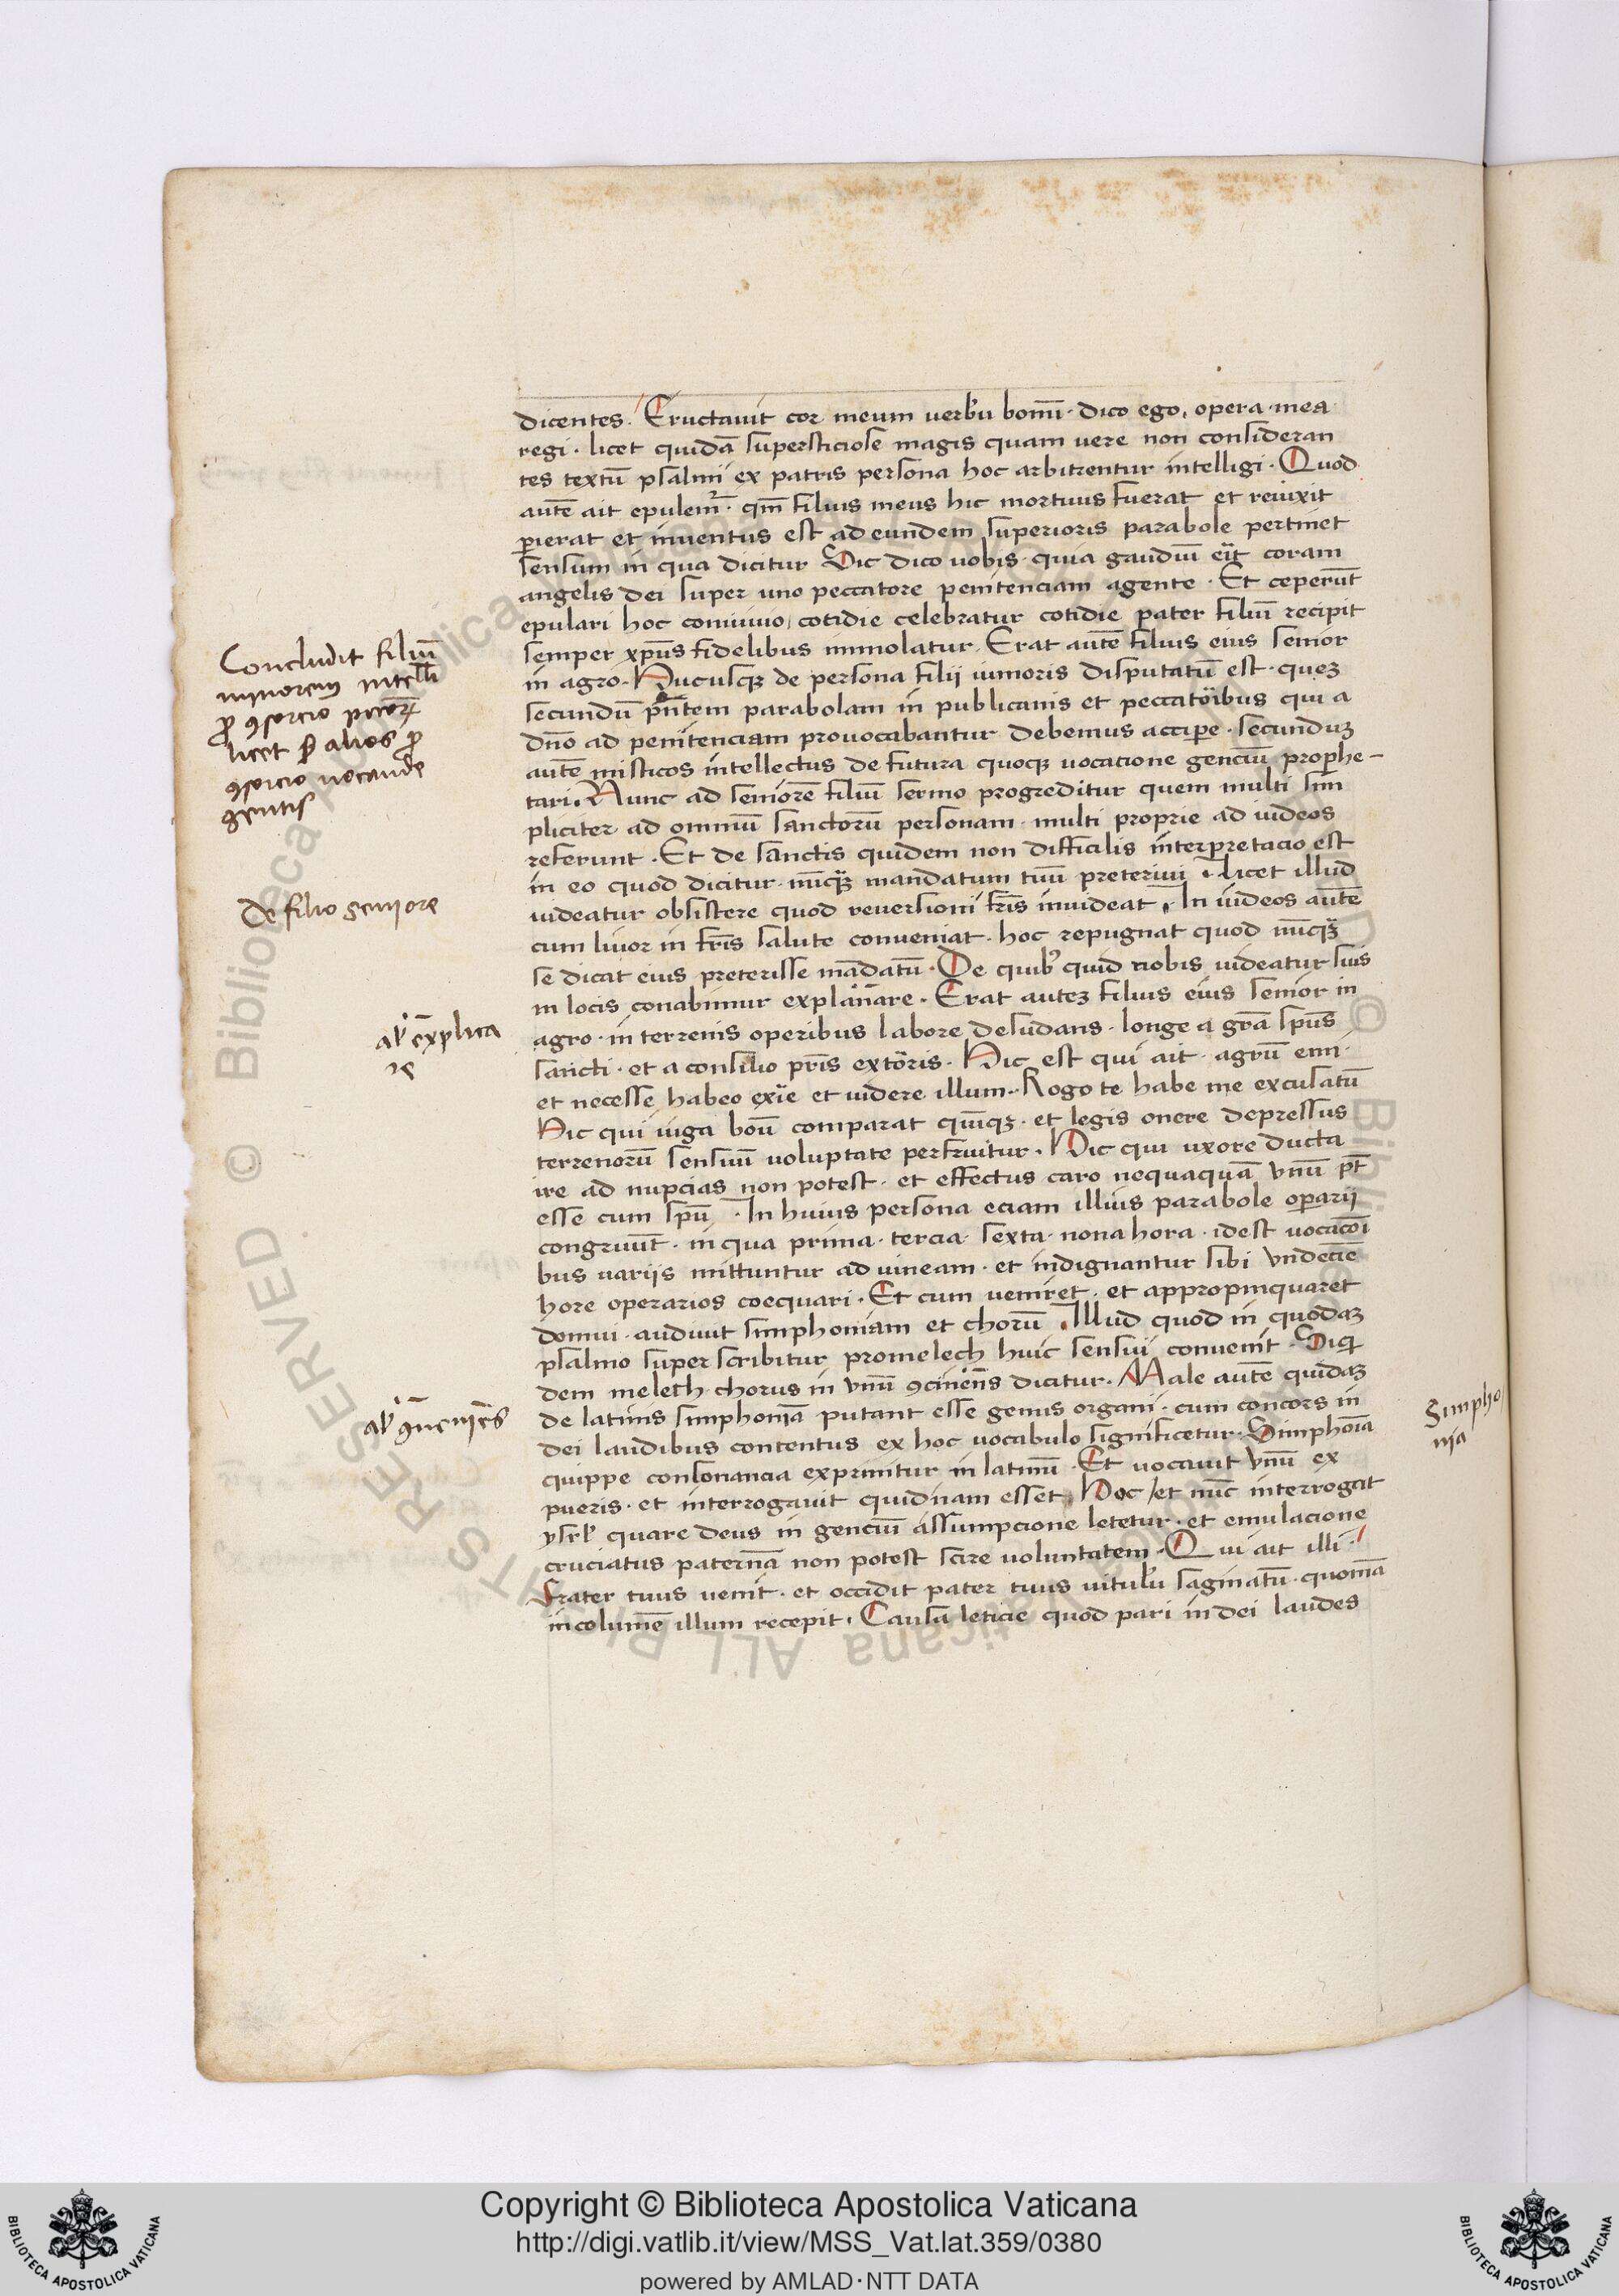 dicentes. Eructauit cor meum uerbū bonū · dico ego opera mea
regi · licet quidā supersticiose magis quam uere non consideran
tes textū psalmi ex patris persona hoc arbitrentur intelligi · Quod
autē ait epulem̄ · qm̄ filius meus hic mortuus fuerat et reuixit
perierat et inuentus est ad eundem superioris parabole pertinet
sensum in qua dicitur Sic dico uobis · quia gaudiū erit coram
angelis dei super uno peccatore penitenciam agente · Et ceperūt
epulari hoc conuiuio cotidie celebratur cotidie pater filiū recipit
semper xp̄us fidelibus immolatur · Erat autē filius eius senior
in agro · Hucusqꝫ de persona filij iunioris disputatū est · queꝫ
secundū pn̄tem parabolam in publicanis et peccatoribus qui a
dn̄o ad penitenciam prouocabantur debemus accipe · secunduꝫ
autē misticos intellectus de futura quoqꝫ uocacione genciū prophe-
tari. Nunc ad seniorē filiū sermo progreditur quem multi sim
pliciter ad omniū sanctorū personam · multi proprie ad iudeos
referunt · Et de sanctis quidem non difficilis interpretacio est
in eo quod dicitur · nūqꝫ mandatum tuū preteriui · licet illud
uideatur obsistere quod reuersioni fr̄is inuideat · In iudeos autē
cum liuor in fr̄is salute conueniat · hoc repugnat quod nūcqꝫ
se dicat eius preterisse mādatū · De quibꝰ quid nobis uideatur suis
in locis conabimur explanare · Erat auteꝫ filius eius senior in
agro · in terrenis operibus labore desudans · longe a gr̄a sp̄us
sancti · et a consilio pr̄is extorris · Hic est qui ait · agrū emi ·
et necesse habeo exire et uidere illum · Rogo te habe me excusatū
Hic qui iuga boū comparat quīqꝫ · et legis onere depressus
terrenorū sensuū uoluptate perfruitur · Hic qui uxore ducta
ire ad nupcias non potest · et effectus caro nequaquā vnū pt̄
esse cum sp̄u · In huius persona eciam illius parabole operarij
congruūt · in qua prima · tercia · sexta · nona hora · idest uocacōi
bus uarijs mittuntur ad uineam · et indignantur sibi vndecīe
hore operarios coequari · Et cum ueniret · et appropinquaret
domui · audiuit simphoniam et chorū · Illud quod in quodaꝫ
psalmo super scribitur promelech huic sensui conuenit · Siqi
dem meleth chorus in vnū ꝯcinens dicitur · Male autē quidaꝫ
de latinis simphoniā putant esse genus organi · cum concors in
dei laudibus contentus ex hoc uocabulo significetur · Simphōia
quippe consonancia exprimitur in latinū · Et uocauit vnū ex
pueris · et interrogauit quidnam esset · Hoc et nūc interrogat
ysrl̄ quare deus in genciū assumpcione letetur · et emulacione
cruciatus paternā non potest scire uoluntatem · Qui ait illi ·
Frater tuus uenit · et occidit pater tuus uitulū saginatū · quoniā
incolumē illum recepit · Causa leticie quod pari in dei laudes
Concludit filiū
minorem intelli
ꝓ ꝯsorcio pccōrꝝ
licet ꝑ alios ꝓ
ꝯsorcio uocande
gentis
De filio seniore
al' explica
re
al' ꝯueniēs
Simpho
nia
Copyright © Biblioteca Apostolica Vaticana
http://digi.vatlib.it/view/MSS_Vat.lat.359/0380
powered by AMLAD·NTT DATA
BIBLIOTECA APOSTOLICA VATICANA
BIBLIOTECA APOSTOLICA VATICANA